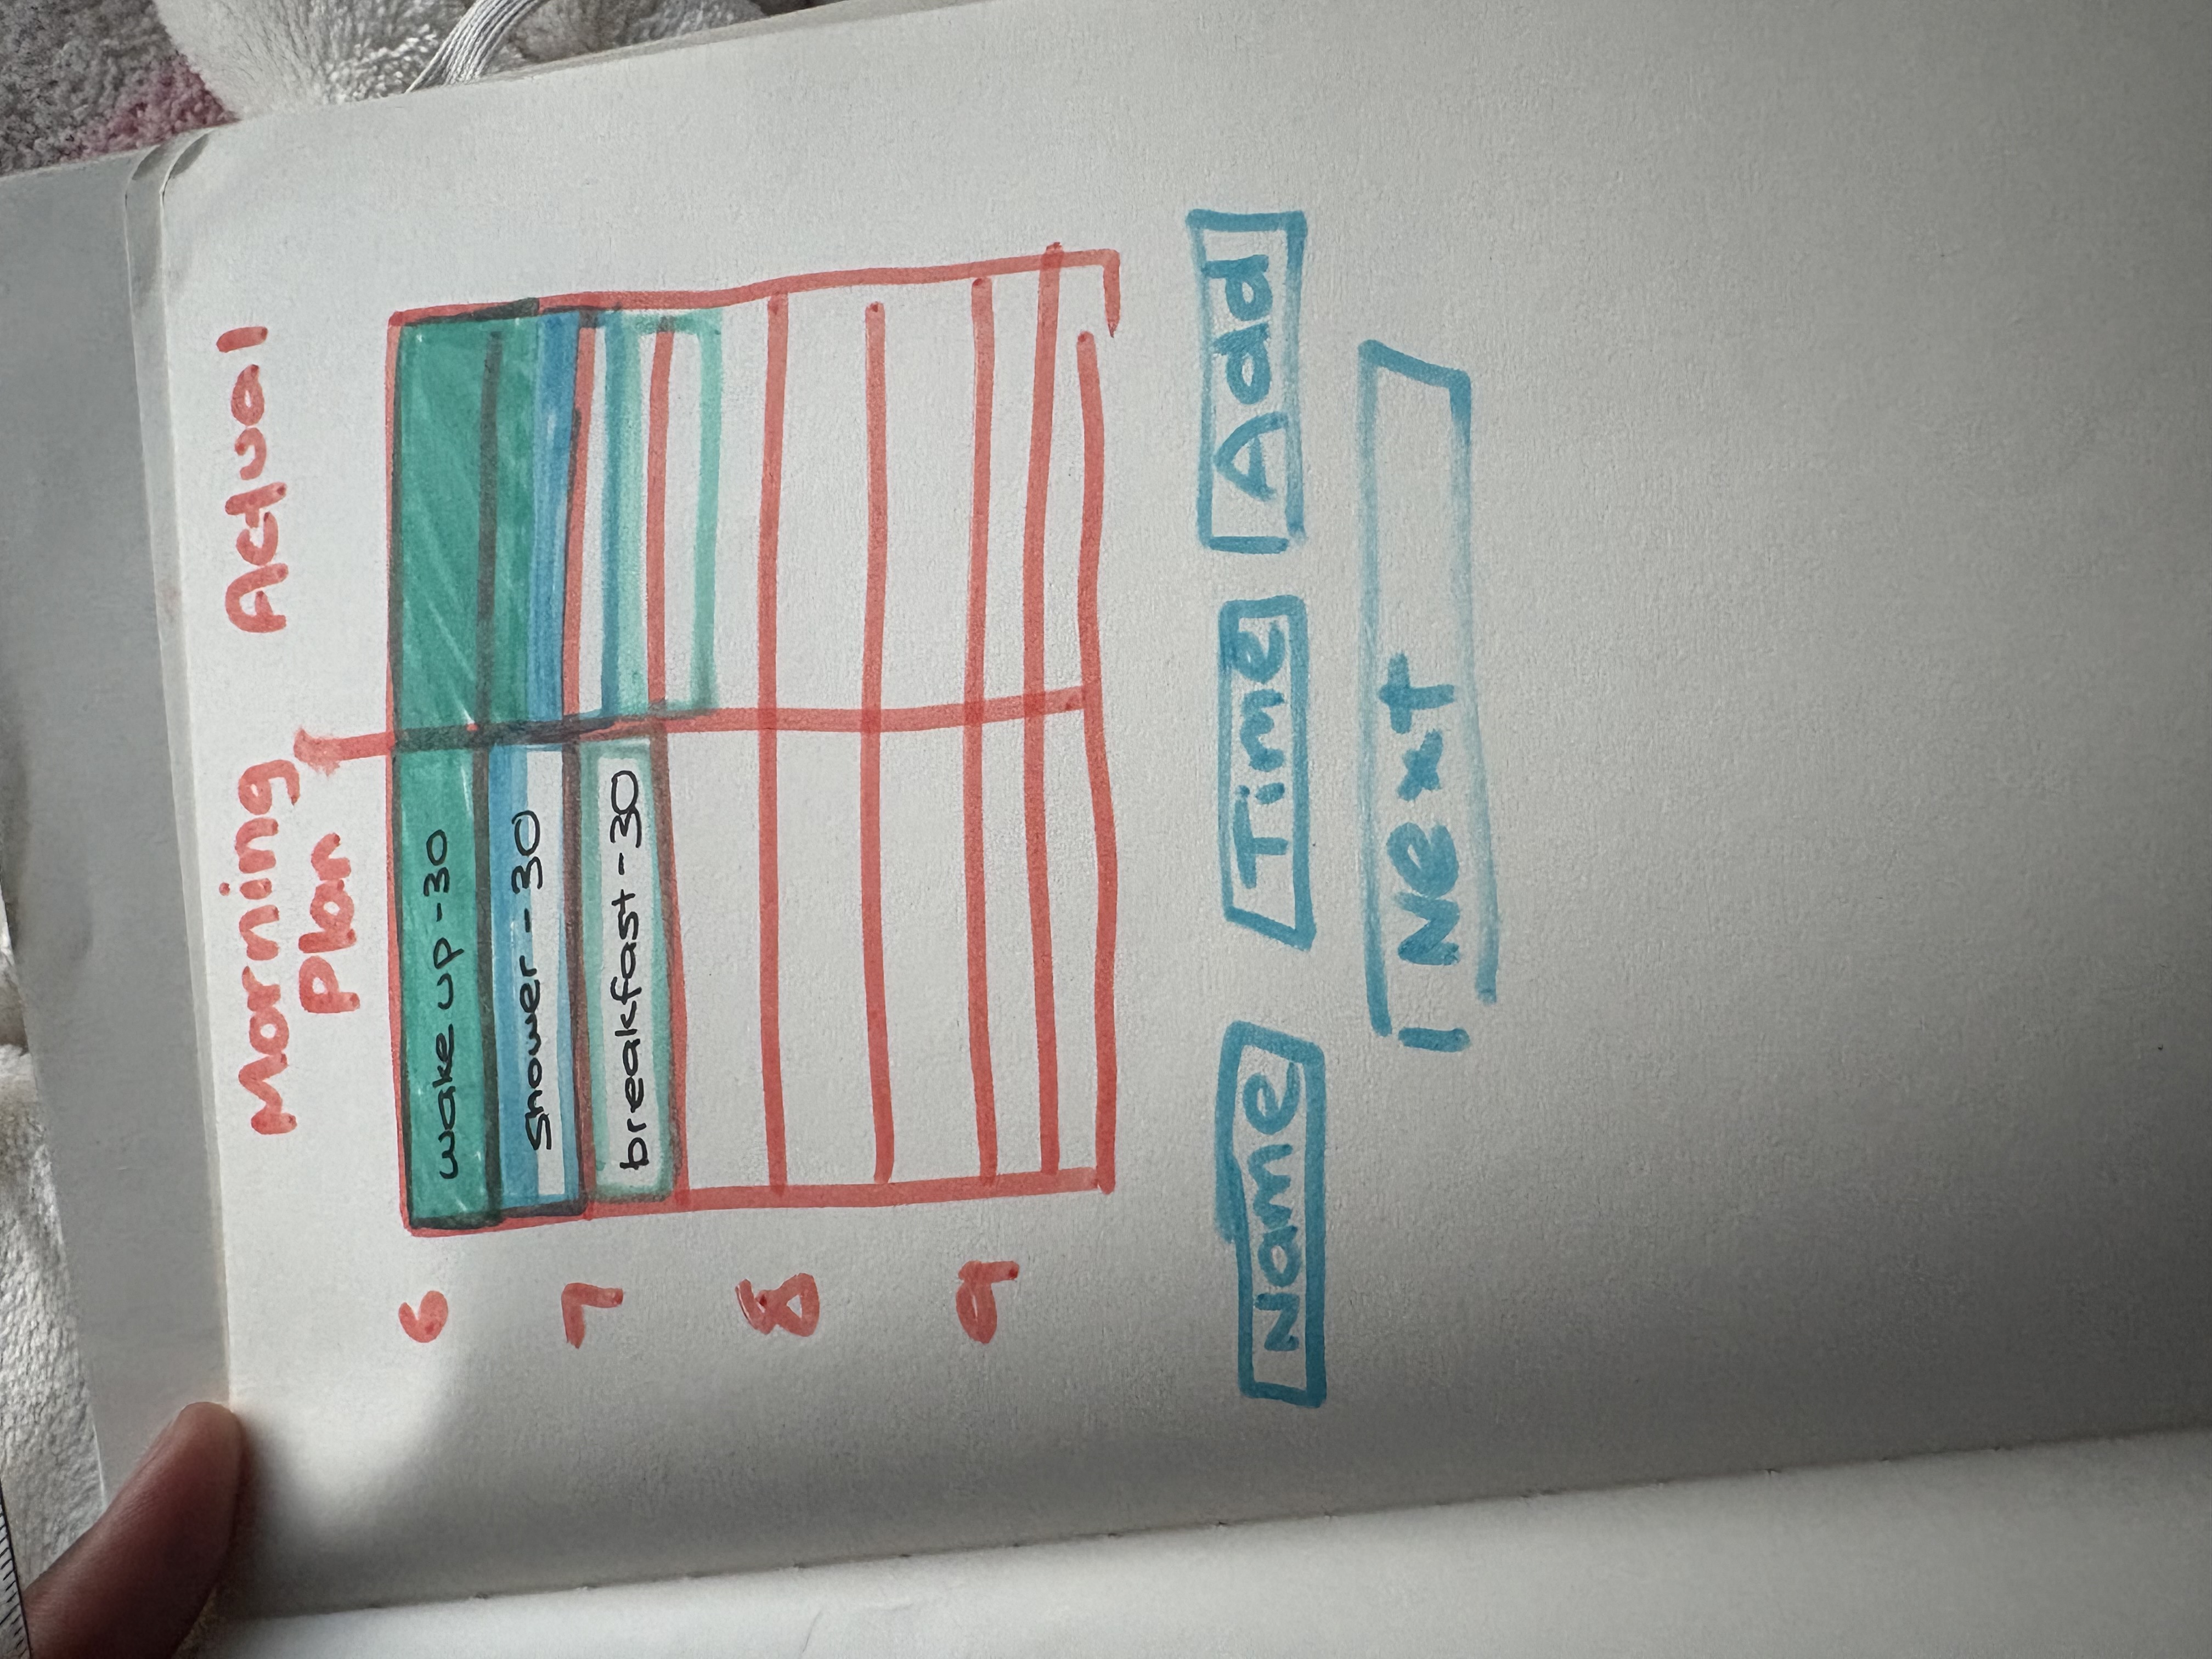 Morning
Plan
Actual
6
wake up - 30
shower - 30
7
breakfast - 30
8
9
Name
Time
Add
Next